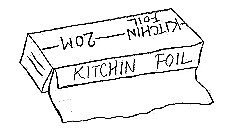 KITCHIN
FOIL
20M
KITCHIN FOIL